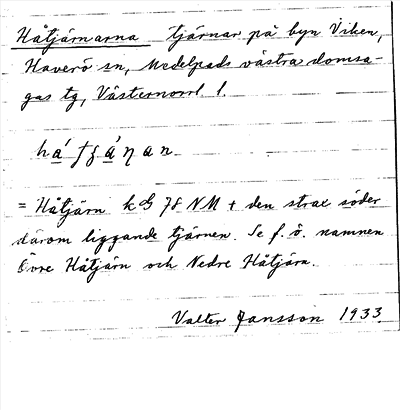 Håtjärnarna tjärnar på byn Viken,
Haverö sn, Medelpads västra domsa-
gas tg, Västernorrl l.
= Håtjärn kbl 78 NM + den strax söder
därom liggande tjärnen. Se f. ö. namnen
Övre Håtjärn och Nedre Håtjärn.
Valter Jansson 1933.